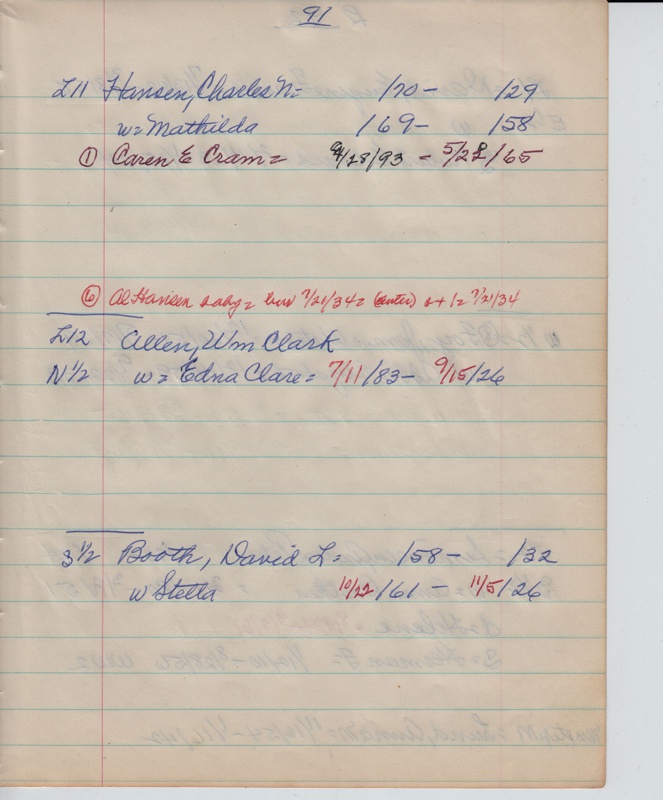 91
L11 Hansen, Charles N= /70- /29
w=Mathilda /69- /158
① Caren E Cram= /18/93 - 5/28/65
⑥ Al Hansen baby= 7/21/34= o+ 1= 7/21/34
L12 Allen, Wm Clark
N½ w= Edna Clare= 7/11/83- 9/15/26
3½ Booth, David L= /58- /32
w Stella 10/22/61 - 11/5/26